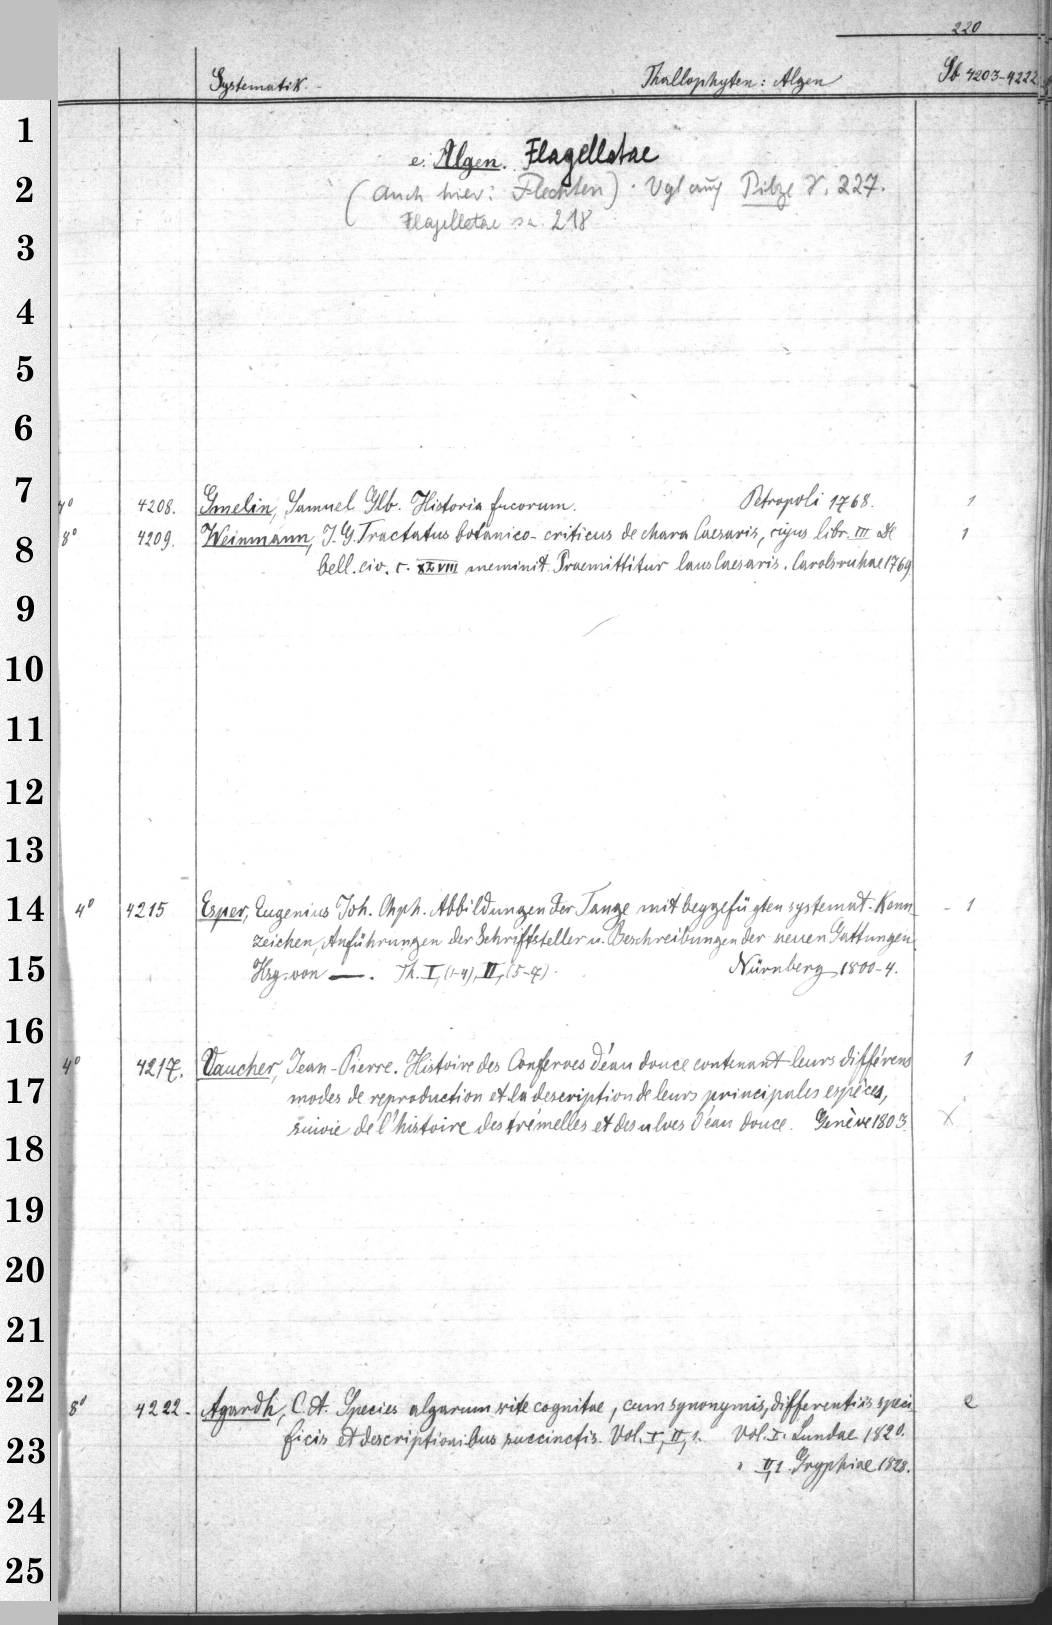 220
Systematik. Thallophyten: Algen Sb 4203-4222
1
e. Algen. Flagellatae
2
(Auch hier: Flechten). Vgl auch Pilze S. 227.
Flagellatae sa. 218
3
4
5
6
7
4° 4208. Gmelin, Samuel Glb. Historia fucorum. Petropoli 1768. 1
8
8° 4209. Weinmann, J. G. Tractatus botanico-criticus de chara Caesaris, cujus libr. III de 1
bell. civ. c. XLVIII meminit. Praemittitur laus Caesaris. Carolsruhae 1769
9
10
11
12
13
14
4° 4215 Esper, Eugenius Joh. Chph. Abbildungen der Tange mit beygefügten systemat. Kenn- 1
zeichen, Anführungen der Schriftsteller u. Beschreibungen der neuen Gattungen.
15
Hrg. von —. Th. I,(1-4), II,(5-7). Nürnberg 1800-4.
16
4° 4217. Vaucher, Jean-Pierre. Histoire des Conferves d'eau douce contenant leurs différens 1
17
modes de reproduction et la description de leurs principales espèces,
suivie de l'histoire des trémelles et des ulves d'eau douce. Genève 1803. X
18
19
20
21
22
8° 4222. Agardh, C. A. Species algarum rite cognitae, cum synonymis, differentiis speci 2
23
ficis et descriptionibus succinctis. Vol. I, II,1. Vol. I. Lundae 1820.
" II,1 Gryphiae 1828.
24
25